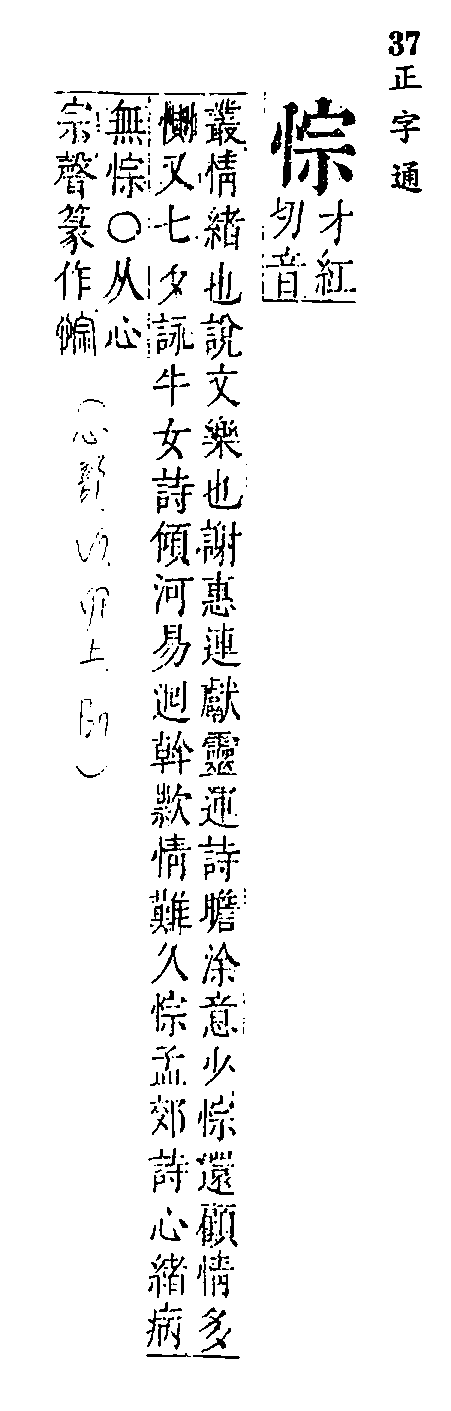 37正字通
悰
才紅
切音
叢情緒也說文樂也謝惠連獻靈運詩瞻涂意少悰還顧情多
又七夕詠牛女詩傾河易迴幹款情難久悰孟郊詩心緒病
無悰〇从心
宗聲篆作